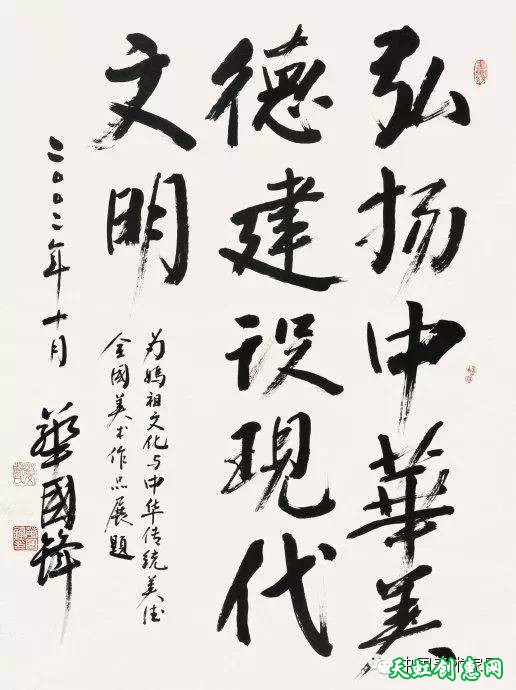 弘扬中華美
德建设現代
文明
为媽祖文化与中华传统美德
全國美术作品展題
二〇〇二年十月
華國锋
天虹创意网